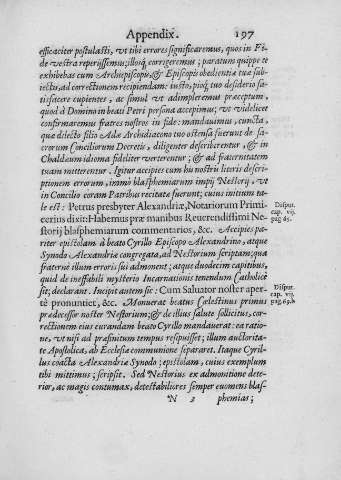 Appendix. 197
efficaciter postulasti, vt tibi errores significaremus, quos in Fi-
de vestra reperijssemus; illosq́; corrigeremus; paratum quippe te
exhibebas cum Archiepiscopis, & Episcopis obedientiæ tuæ sub-
iectis, ad correctionem recipiendam: iusto, pioq́; tuo desiderio sa-
tisfacere cupientes, ac simul vt adimpleremus præceptum,
quod à Domino in beati Petri persona accepimus; vt videlicet
confirmaremus fratres nostros in fide: mandauimus, cuncta,
quæ dilecto filio Adæ Archidiacono tuo ostensa fuerunt de sa-
crorum Conciliorum Decretis, diligenter describerentur, & in
Chaldæum idioma fideliter verterentur; & ad fraternitatem
tuam mitterentur. Igitur accipies cum hu nostris literis descri-
ptionem errorum, immò blasphemiarum impij Nestorij, vt
in Concilio coram Patribus recitata fuerunt; cuius initium ta-
le est: Petrus presbyter Alexandriæ, Notariorum Primi-
cerius dixit: Habemus præ manibus Reuerendissimi Ne-
storij blasphemiarum commentarios, &c. Accipies pa-
riter epistolam à beato Cyrillo Episcopo Alexandrino, atque
Synodo Alexandriæ congregata, ad Nestorium scriptam; qua
fraternè illum erroris sui admonent; atque duodecim capitibus,
quid de ineffabili mysterio Incarnationis tenendum Catholicè
sit, declarant. Incipit autem sic: Cum Saluator noster aper-
tè pronuntiet, &c. Monuerat beatus Cælestinus primus
prædecessor noster Nestorium; & de illius salute sollicitus, cor-
rectionem eius curandam beato Cyrillo mandauerat: ea ratio-
ne, vt nisi ad præfinitum tempus respuisset; illum auctorita-
te Apostolica, ab Ecclesiæ communione separaret. Itaque Cyril-
lus coacta Alexandriæ Synodo; epistolam, cuius exemplum
tibi mittimus; scripsit. Sed Nestorius ex admonitione dete-
rior, ac magis contumax, detestabiliores semper euomens blas-
N 3 phemias;
Disput.
cap. vij.
pag. 65.
Disput.
cap. vij.
pag. 69.b